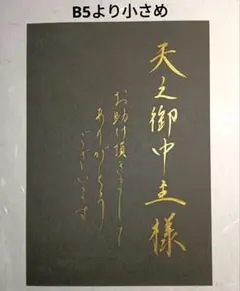 B5より小さめ
天之御中主様
お助け頂きまして
ありがとう
ございます